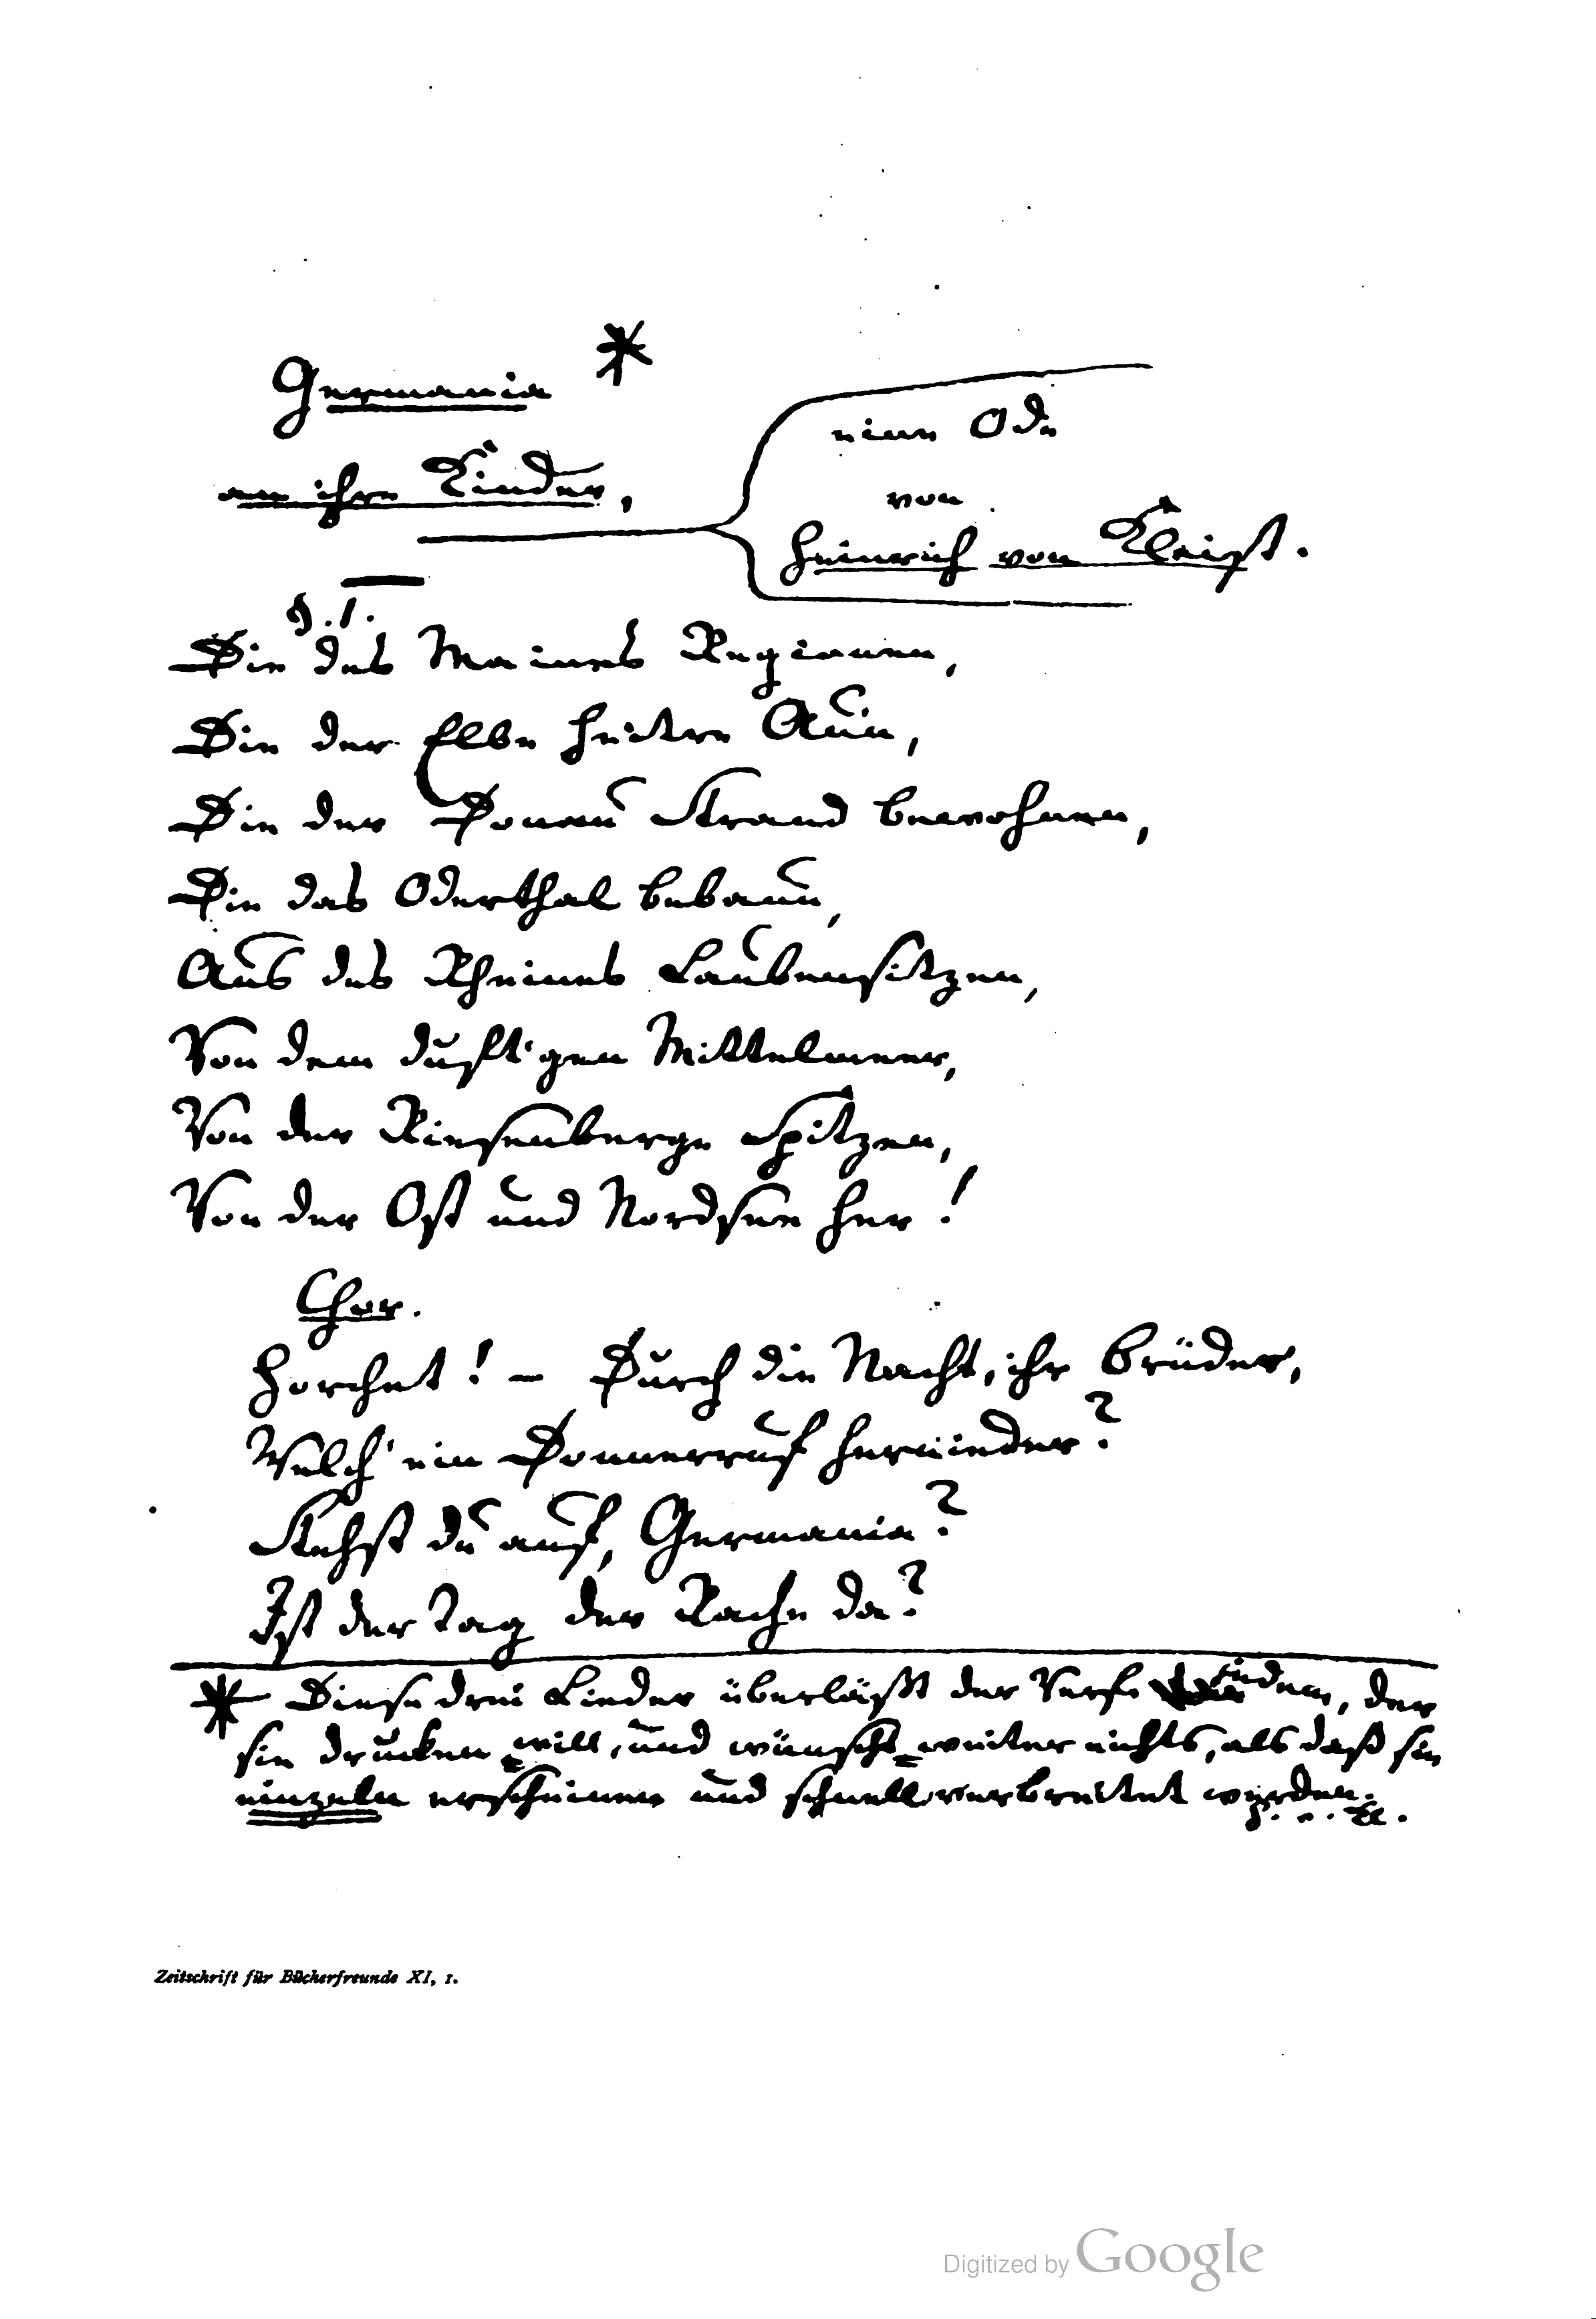 Germania *
an ihre Kinder,
eine Ode
von
Heinrich von Kleist.
§. 1.
Die des Maines Regionen,
Die der Elbe heitre Aun,
Die der Donau Strand bewohnen,
Die das Oderthal bebaun,
Aus des Rheines Laubensitzen,
Von dem duft'gen Mittelmeer,
Von der Riesenberge Spitzen,
Von der Ost und Nordsee her!
Chor.
Horchet! – Durch die Nacht, ihr Brüder,
Welch' ein Donnerruf hernieder?
Stehst du auf, Germania?
Ist der Tag der Rache da?
* Diese drei Lieder überläßt der Verf. jedem, der
sie drucken will, und wünscht weiter nichts, als daß sie
einzeln erscheinen und schnell verbreitet werden.
Zeitschrift für Bücherfreunde XI, 1.
Digitized by Google